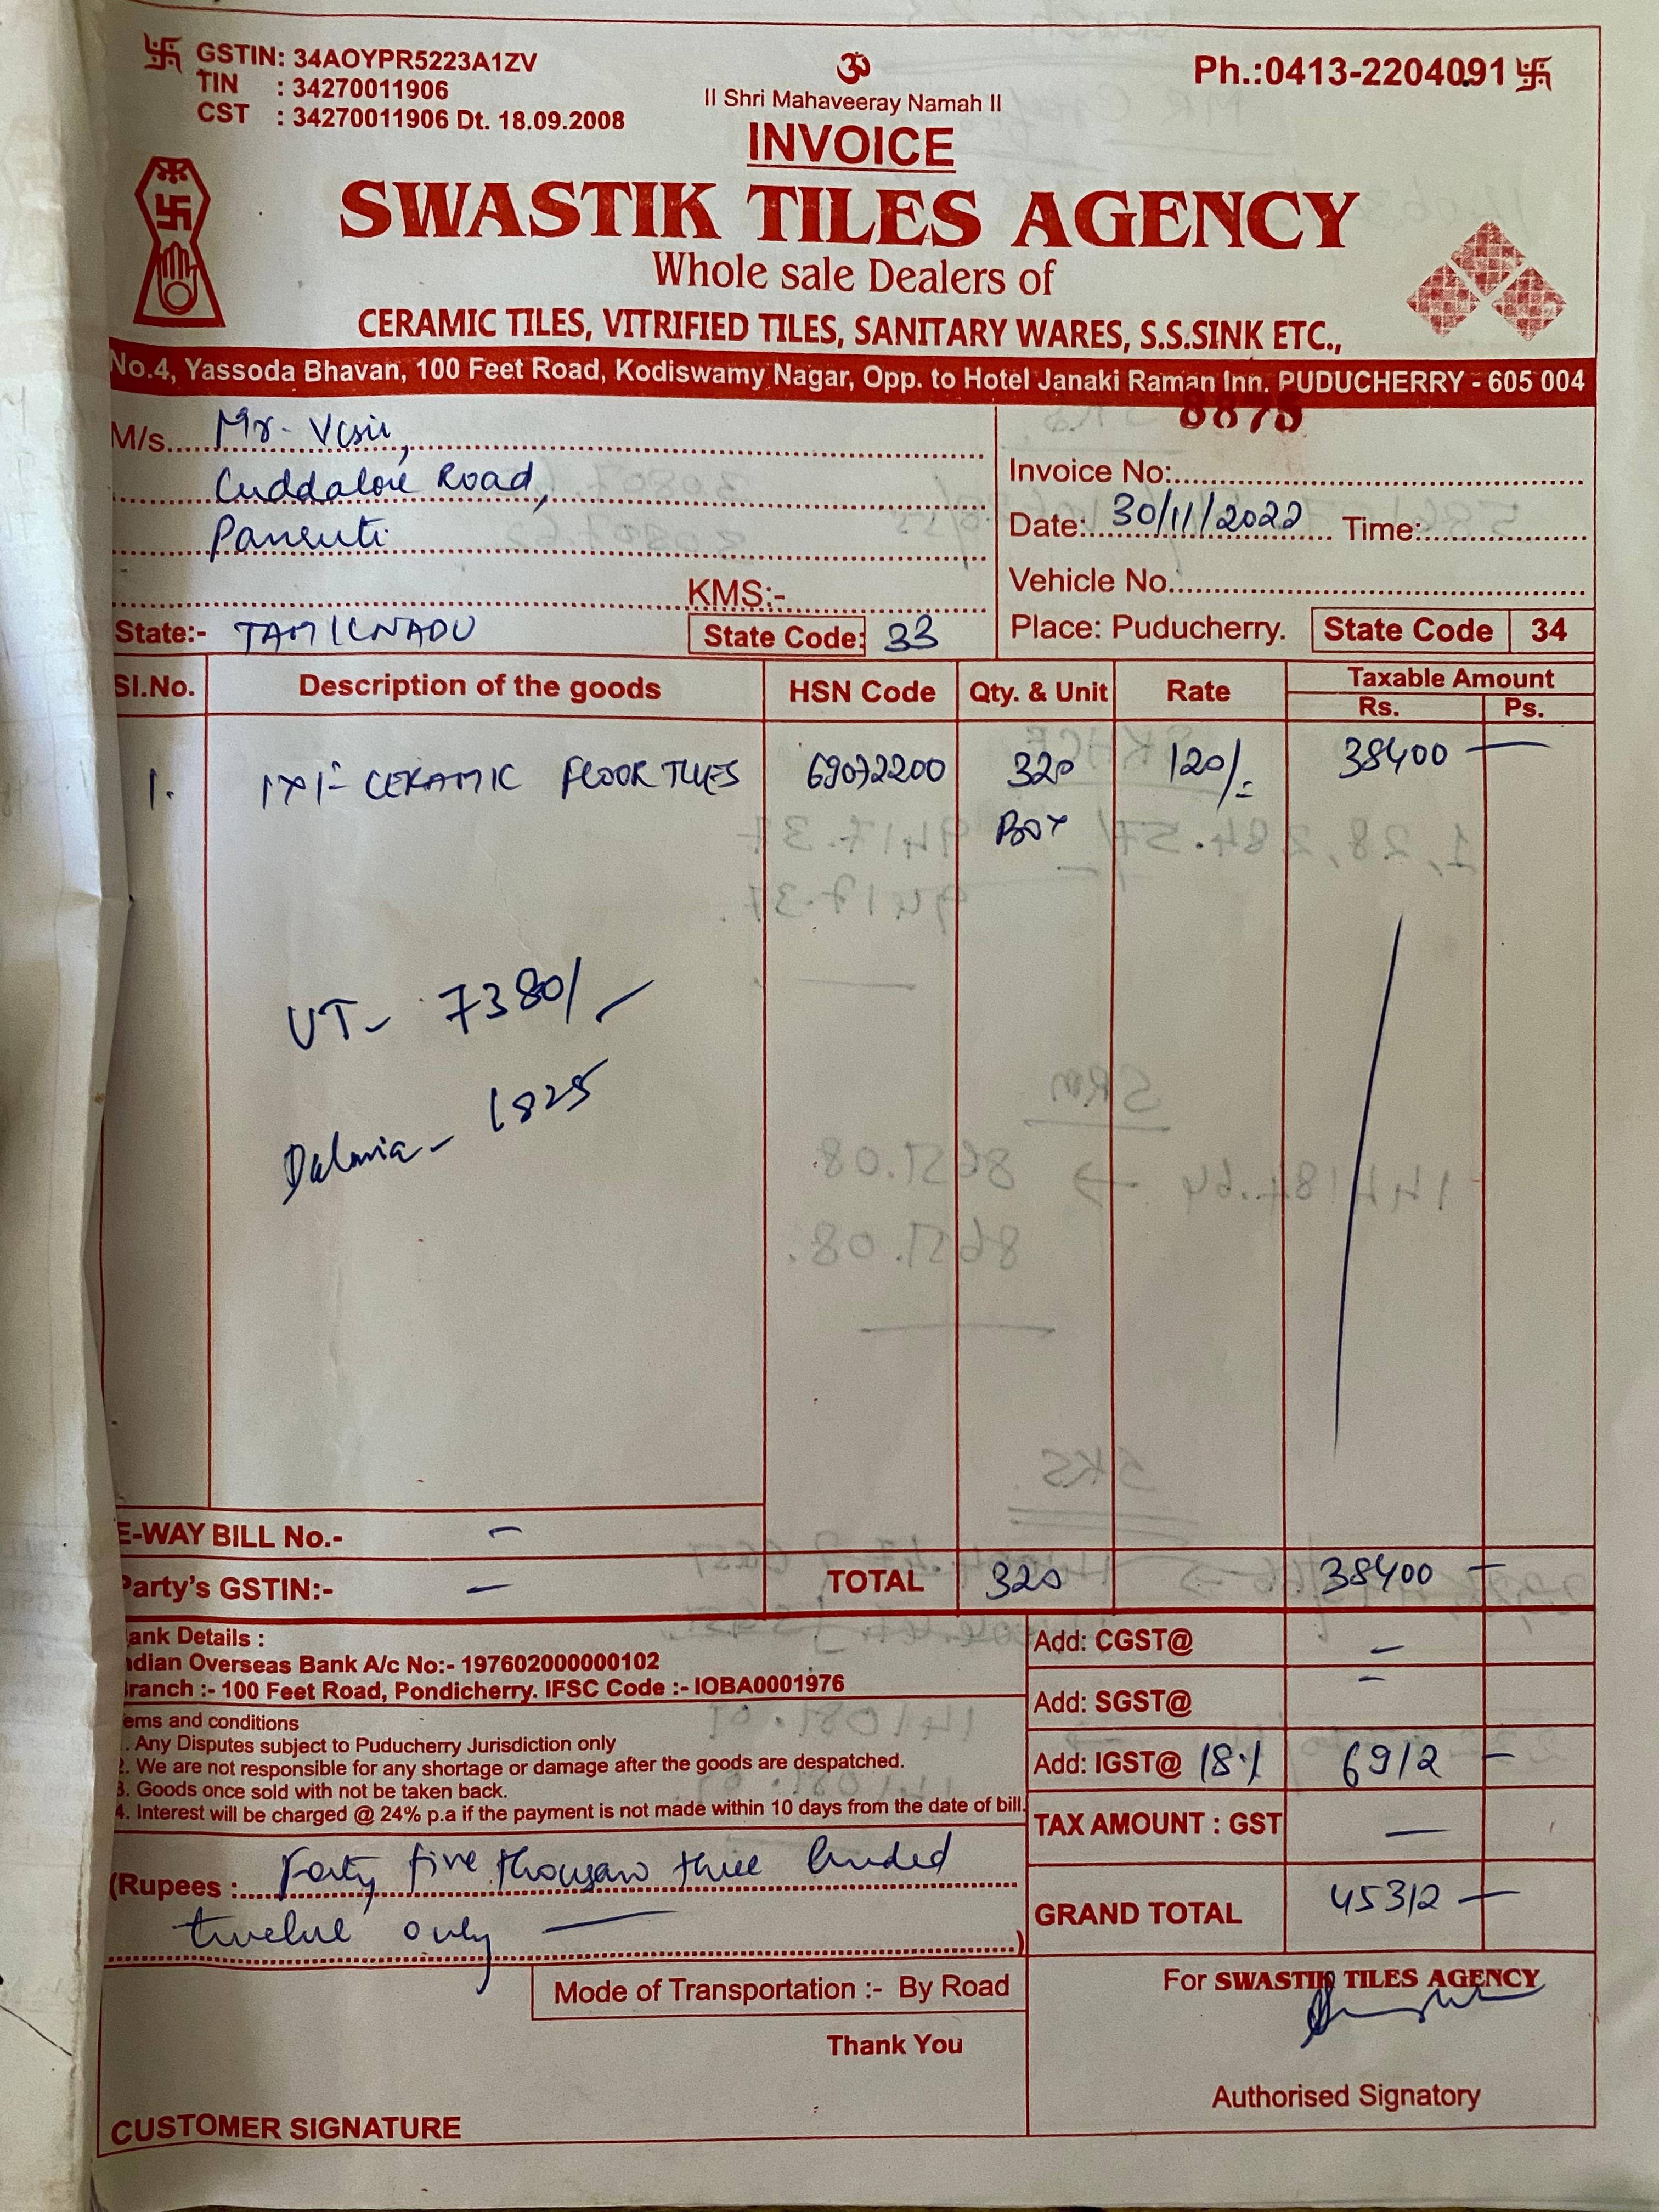 GSTIN: 34AOYPR5223A1ZV
TIN : 34270011906
CST : 34270011906 Dt. 18.09.2008
ॐ
II Shri Mahaveeray Namah II
Ph.:0413-2204091
INVOICE
SWASTIK TILES AGENCY
Whole sale Dealers of
CERAMIC TILES, VITRIFIED TILES, SANITARY WARES, S.S.SINK ETC.,
No.4, Yassoda Bhavan, 100 Feet Road, Kodiswamy Nagar, Opp. to Hotel Janaki Raman Inn. PUDUCHERRY - 605 004
M/s. Mr-
Cuddalore Road,
Panruti
KMS:-
State:- TAMILNADU State Code: 33
8875
Invoice No:
Date: 30/11/2022 Time:
Vehicle No.
Place: Puducherry. State Code 34
Sl.No. Description of the goods HSN Code Qty. & Unit Rate Taxable Amount
Rs. Ps.
1. 1x1- CERAMIC FLOOR TILES 69072200 320 120/= 38400 —
BOX
UT- 7380/-
Dalmia - 1825
E-WAY BILL No.- —
Party's GSTIN:- — TOTAL 320 38400 —
ank Details :
ndian Overseas Bank A/c No:- 197602000000102
ranch :- 100 Feet Road, Pondicherry. IFSC Code :- IOBA0001976
ems and conditions
. Any Disputes subject to Puducherry Jurisdiction only
2. We are not responsible for any shortage or damage after the goods are despatched.
3. Goods once sold with not be taken back.
4. Interest will be charged @ 24% p.a if the payment is not made within 10 days from the date of bill.
Add: CGST@ —
Add: SGST@ —
Add: IGST@ 18% 6912 —
TAX AMOUNT : GST —
GRAND TOTAL 45312 —
(Rupees : Forty five thousan three hunded
twelve only — )
Mode of Transportation :- By Road
Thank You
CUSTOMER SIGNATURE
For SWASTIK TILES AGENCY
Authorised Signatory